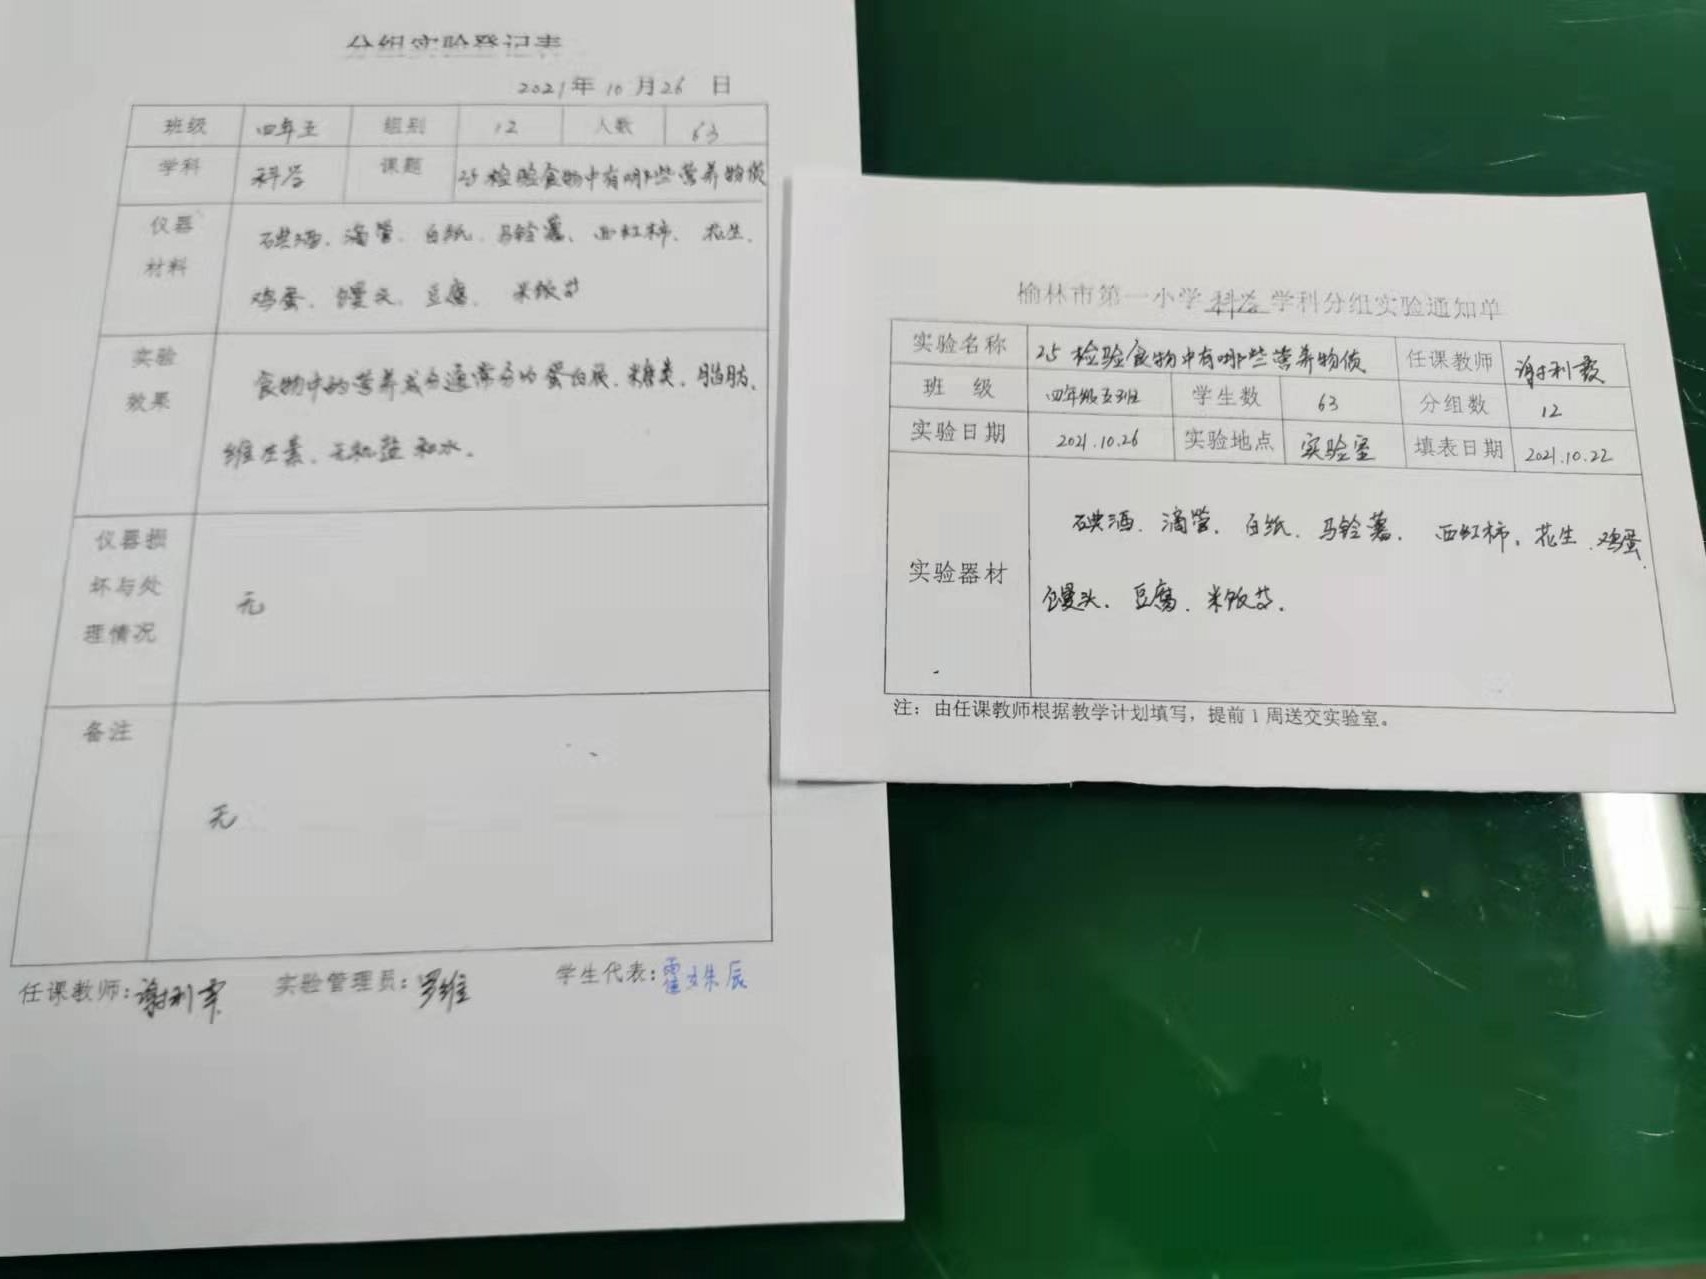 分组实验登记表
2021年10月26日
班级 四年五 组别 12 人数 63
学科 科学 课题 25检验食物中有哪些营养物质
仪器
材料
碘酒、滴管、白纸、马铃薯、西红柿、花生、
鸡蛋、馒头、豆腐、米饭等
实验
效果
食物中的营养成分通常分为蛋白质、糖类、脂肪、
维生素、无机盐和水。
仪器损
坏与处
理情况
无
备注
无
任课教师: 谢利 实验管理员: 罗维 学生代表: 霍姝辰
榆林市第一小学科学学科分组实验通知单
实验名称 25 检验食物中有哪些营养物质 任课教师 谢利
班 级 四年级五班 学生数 63 分组数 12
实验日期 2021.10.26 实验地点 实验室 填表日期 2021.10.22
实验器材
碘酒、滴管、白纸、马铃薯、西红柿、花生、鸡蛋、
馒头、豆腐、米饭等.
注：由任课教师根据教学计划填写，提前1周送交实验室。